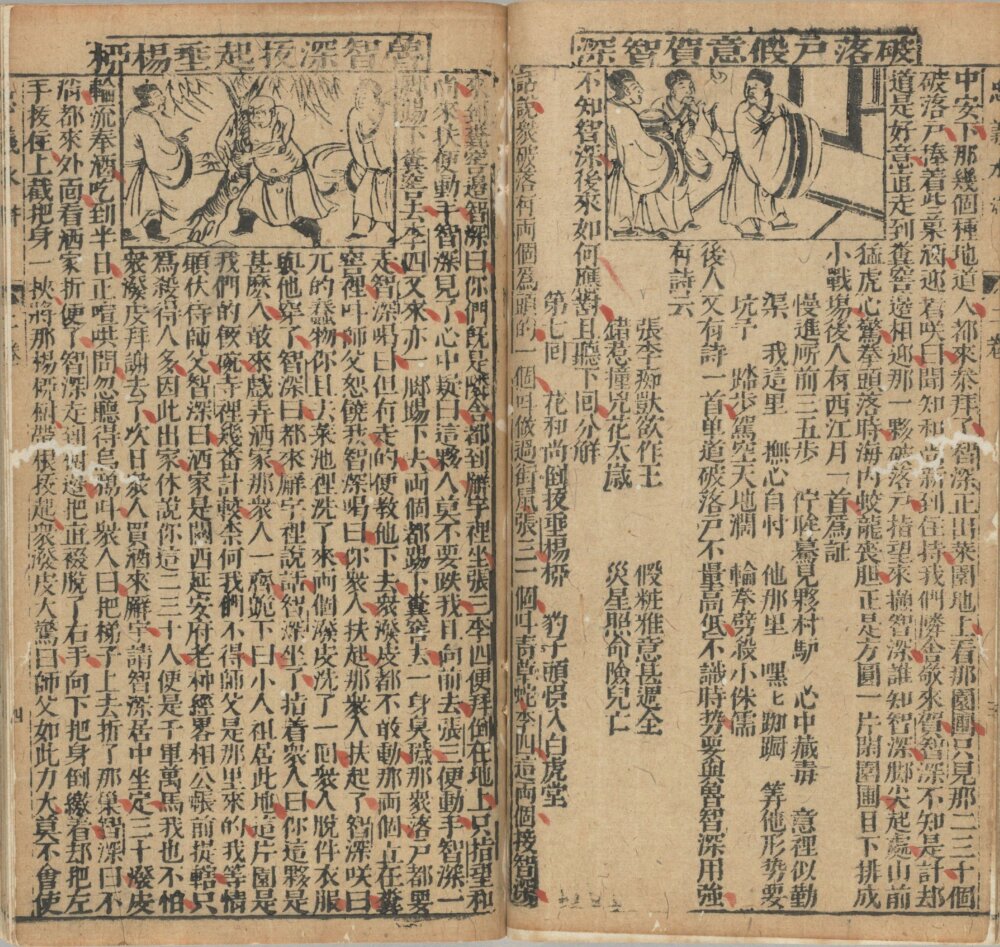 破落戶假意賀智深
中安下那幾個種地道人都來參拜了智深正出菜園地上看那園圃只見那二三十個
破落戶捧着此三菓酒迎着咲曰聞知和尚新到住持我們隣舍敬來賀智深不知是計却
道是好意直走到糞窖邊相迎那一夥破落戶指望來攧智深誰知智深脚尖起處山前
猛虎心驚拳頭落時海內蛟龍喪胆正是方圓一片閑園圃目下排成
小戰場後人有西江月一首為証
慢進所前三五步 佇眙驀見夥村驢 心中藏毒 意裡似勤
渠 我這里 撫心自忖 他那里 嘿匕踟蹰 等他形勢要
坑予 踏步駕空天地濶 輪拳劈殺小侏儒
後人又有詩一首單道破落戶不量高低不識時勢要與魯智深用強
有詩云
張李痴獃欲作王 假粧雅意甚週全
撞兇花太歲 災星照命險兒亡
不知智深後來如何應對且聽下回分解
第七回 花和尚倒拔垂楊柳 豹子頭悞入白虎堂
話說衆破落村兩個為頭的一個叫做過街鼠張三一個叫靑草蛇李四這兩個接智深
魯智深拔起垂楊柳
來到糞窖邊智深曰你們既是隣舍都到廨宇裡坐張三李四便拜倒在地上只指望和
尚來扶便動手智深見了心中疑曰這夥人莫不要跌我且向前去張三便動手智深一
脚踢下糞窖去李四又來亦一脚踢下去兩個都踢下糞窖去一身臭穢那衆落戶都要
走智深喝曰但有走的便教他下去衆潑皮都不敢動那兩個立在糞
窖裡叫師父恕饒我智深喝曰你衆人扶起那衆人扶起了智深咲曰
兀的蠢物你且去菜池裡洗了來兩個潑皮洗了一個衆人脫件衣服
與他穿了智深曰都來廨宇裡說話智深坐了指着衆人曰你這夥是
甚麽人敢來戲弄洒家那衆人一齊跪下曰小人祖居此地這片園是
我們的飯碗寺裡幾番計較奈何我們不得師父是那里來的我等情
願伏侍師父智深曰洒家是關西延安府老种經畧相公帳前提轄只
為殺得人多因此出家休說你這二三十人便是千軍萬馬我也不怕
衆潑皮拜謝去了次日衆人買酒來廨宇請智深居中坐定三十潑皮
輪流奉酒吃到半日正喧哄間忽聽得烏鴉叫衆人曰把梯子上去折了那巢智深曰不
消都來外面看洒家折便了智深走到樹邊把直裰脫了右手向下把身倒繳着却把左
手扳住上截把身一挾將那楊柳樹帶根拔起衆潑皮大驚曰師父如此力大莫不會使
四